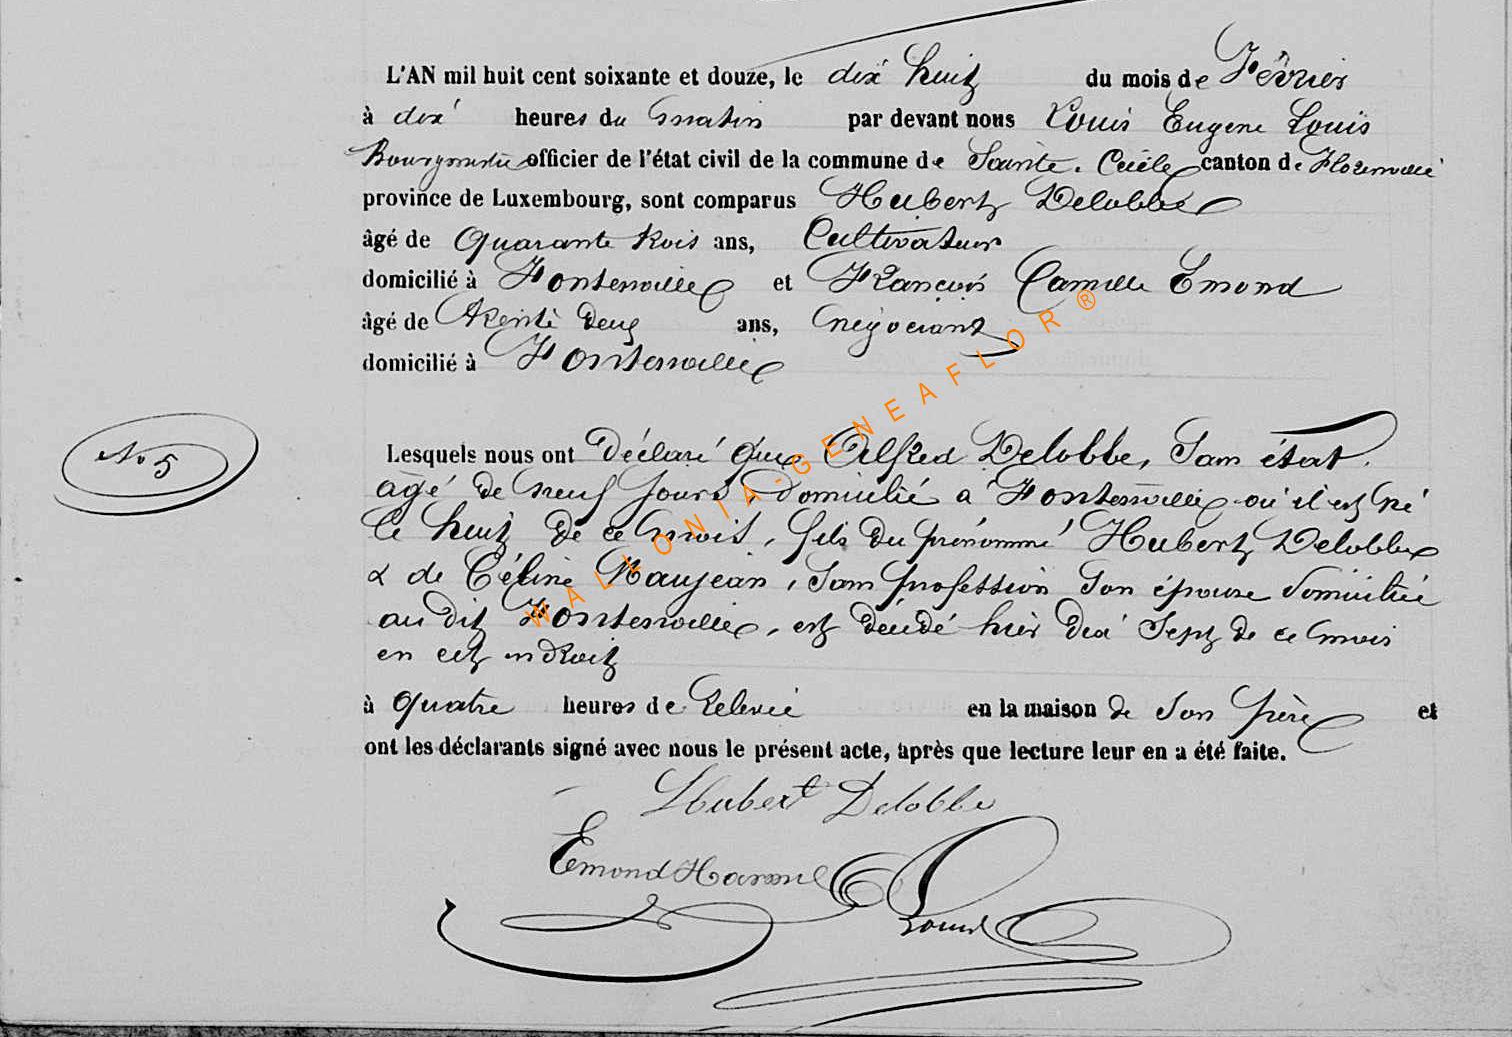 L'AN mil huit cent soixante et douze, le dix huit du mois de Février
à dix heures du matin par devant nous Louis Eugene Louis
Bourgmestre officier de l'état civil de la commune de Sainte. Cécile canton de Florenville
province de Luxembourg, sont comparus Hubert Delobbe
âgé de Quarante trois ans, Cultivateur
domicilié à Fontenoille et François Camille Emond
âgé de trente deux ans, négociant
domicilié à Fontenoille
No 5
Lesquels nous ont déclaré que Alfred Delobbe, Sans état.
agé de neuf jours, domicilié à Fontenoille où il est né
le huit de ce mois, fils du prénommé Hubert Delobbe
& de Céline Maujean, Sans profession Son épouse domiciliée
au dit Fontenoille, est décédé hier dix Sept de ce mois
en cet endroit
à quatre heures de relevée en la maison de Son père et
ont les déclarants signé avec nous le présent acte, après que lecture leur en a été faite.
Hubert Delobbe
Emond Harmel
Louis
WALLONIA-GENEAFLOR®